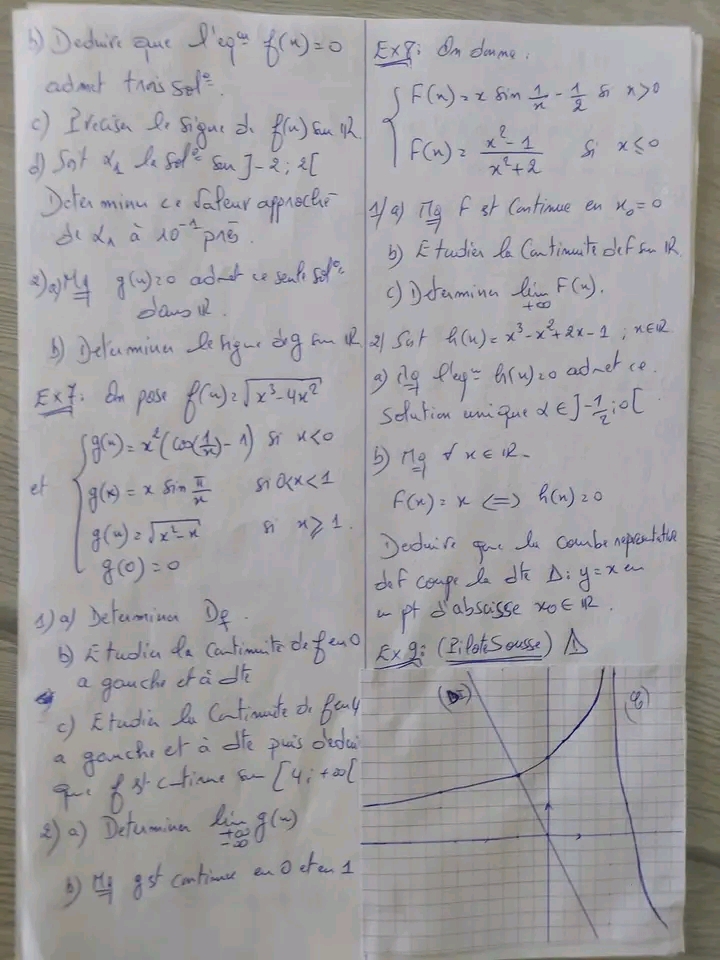 b) Deduire que l'eqᵘᵃ f(x)=0
admet trois solᵒ.
c) Preciser le signe de f(x) sur ℝ
d) Soit α₁ la solᵒ sur ]-2; 2[
Determiner ce valeur approché
de α₁ à 10⁻¹ près.
2) a) Mq g(x)=0 admet ce seule solᵒ
dans ℝ.
b) Determiner le signe de g sur ℝ
Ex 7: On pose f(x)=√(x³-4x²)
et
g(x)= x²(cos(1/x)-1) si x<0
g(x)= x sin π/x si 0<x<1
g(x)=√(x²-x) si x≥1.
g(0)=0
1) a) Determiner Df.
b) Etudier la Continuite de f en 0
a gauche et à dte
c) Etudier la Continuite de f en 4
a gauche et à dte puis dedui
que f est continue sur [4; +∞[
2) a) Determiner lim g(x)
+∞
-∞
b) Mq g st continue en 0 et en 1
Ex 8: On donne:
F(x)= x sin 1/x - 1/2 si x>0
F(x)= (x²-1)/(x²+2) si x≤0
1/ a) Mq F st Continue en x₀=0
b) Etudier la Continuite de f sur ℝ
c) Determiner lim F(x).
+∞
2) Soit h(x)=x³-x²+2x-1 ; x∈ℝ
a) Mq l'eqᵘᵃ h(x)=0 admet ce
solution unique α∈]-1/2;0[
b) Mq ∀ x∈ℝ-
F(x)=x <=> h(x)=0
Deduire que la courbe representative
de f coupe la dte Δ: y=x en
un pt d'abscisse x₀∈ℝ.
Ex 9: (Pilote Sousse) Δ